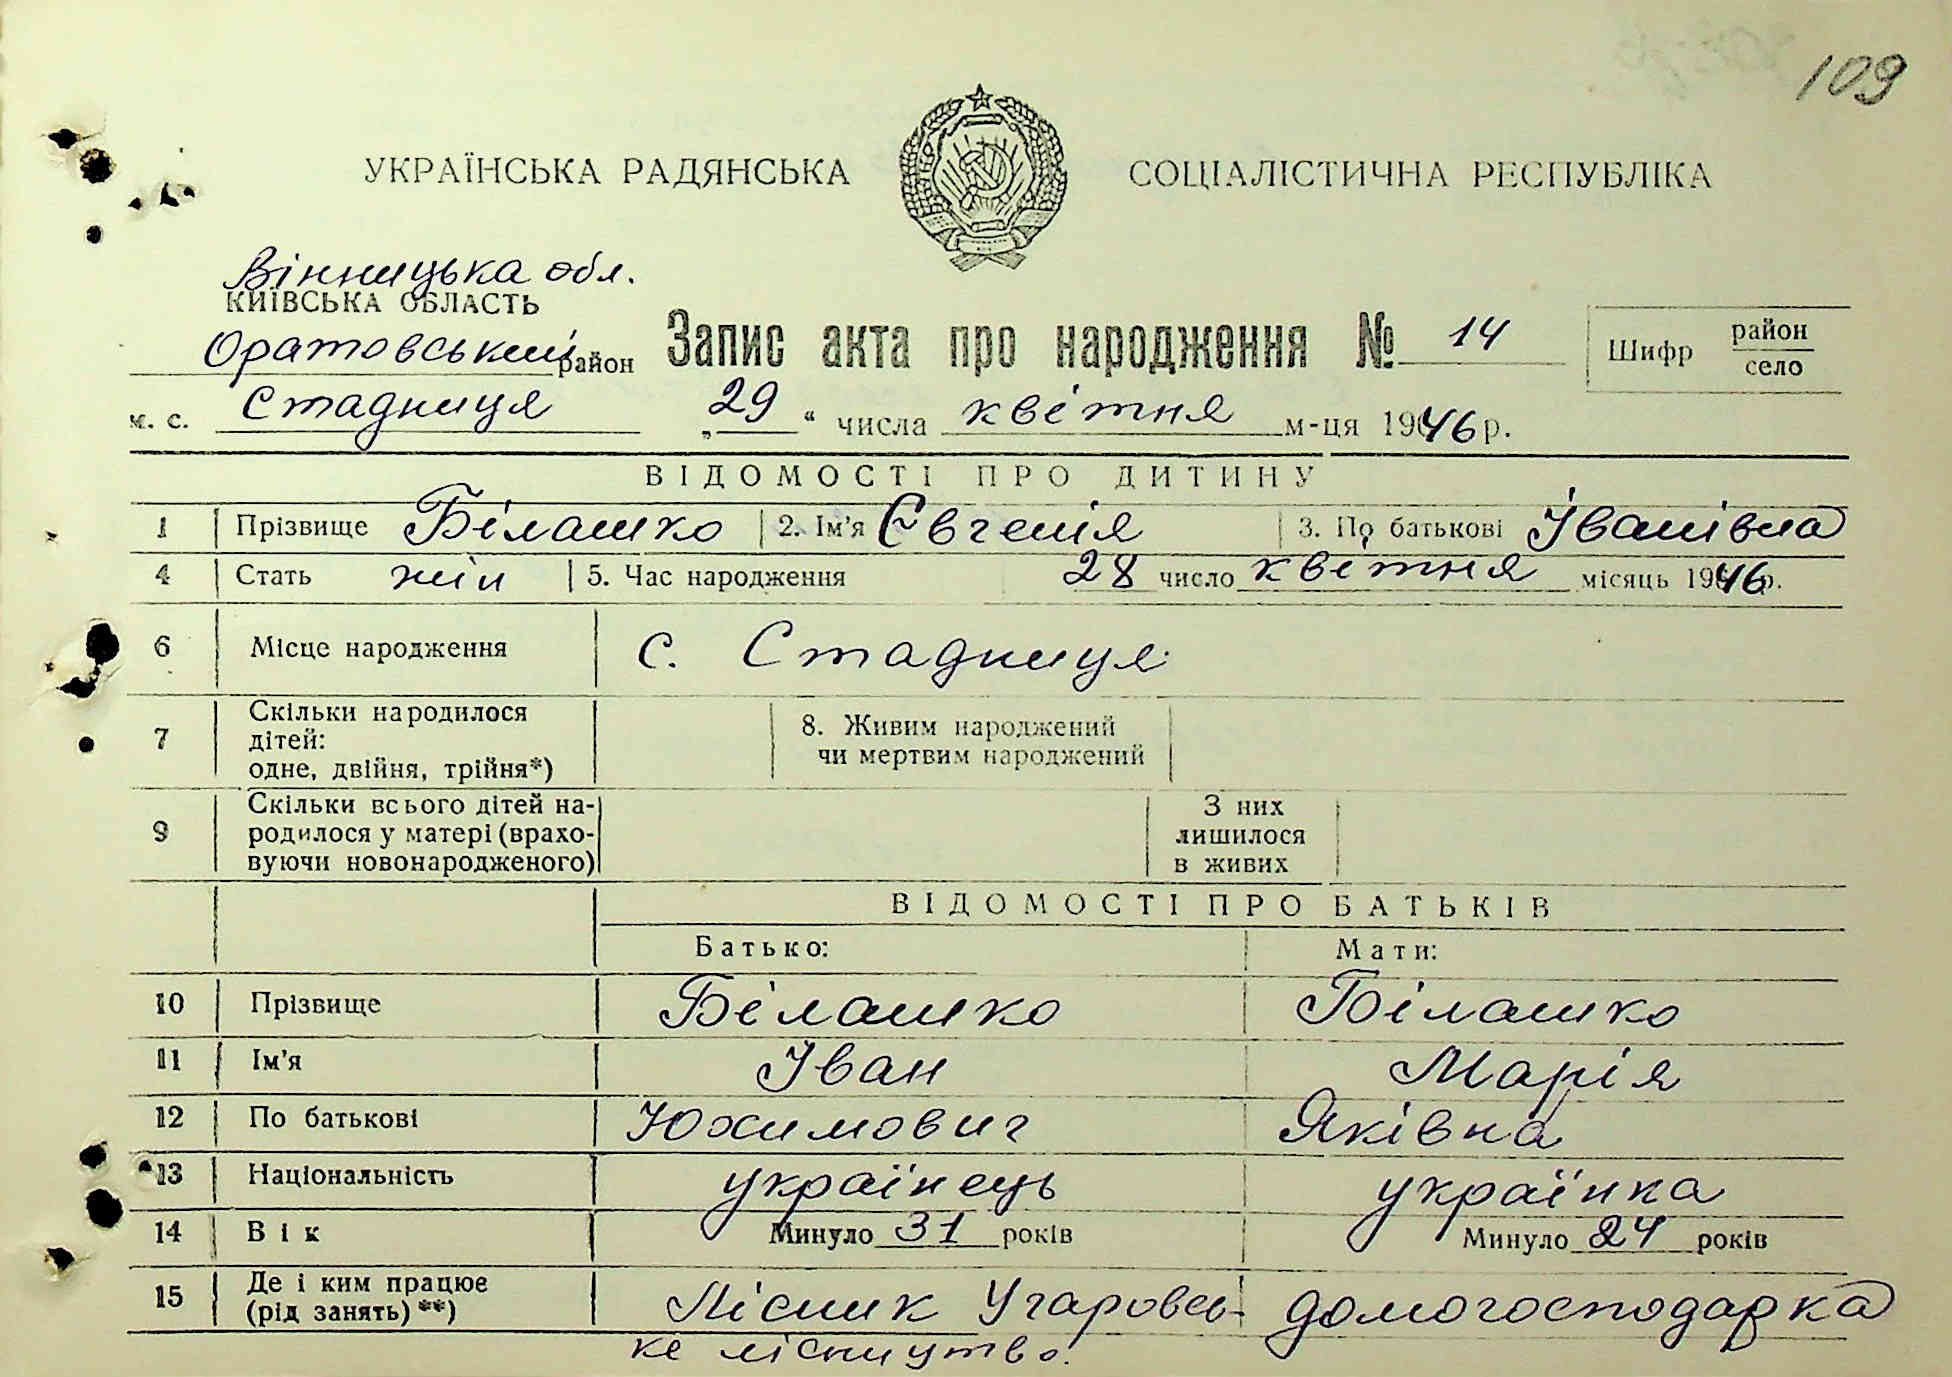 109
УКРАЇНСЬКА РАДЯНСЬКА СОЦІАЛІСТИЧНА РЕСПУБЛІКА
Вінницька обл.
КИЇВСЬКА ОБЛАСТЬ
Оратовський район Запис акта про народження № 14 Шифр район село
м. с. Стадниця „29“ числа квітня м-ця 1946 р.
ВІДОМОСТІ ПРО ДИТИНУ
1 Прізвище Білашко 2. Ім'я Євгенія 3. По батькові Іванівна
4 Стать жін 5. Час народження 28 число квітня місяць 1946 р.
6 Місце народження с. Стадниця
7 Скільки народилося дітей: одне, двійня, трійня*) 8. Живим народжений чи мертвим народжений
9 Скільки всього дітей народилося у матері (враховуючи новонародженого) З них лишилося в живих
ВІДОМОСТІ ПРО БАТЬКІВ
Батько: Мати:
10 Прізвище Білашко Білашко
11 Ім'я Іван Марія
12 По батькові Юхимович Яківна
13 Національність українець українка
14 Вік Минуло 31 років Минуло 24 років
15 Де і ким працює (рід занять) **) Лісник Угаровсь- домогосподарка
ке лісництво.